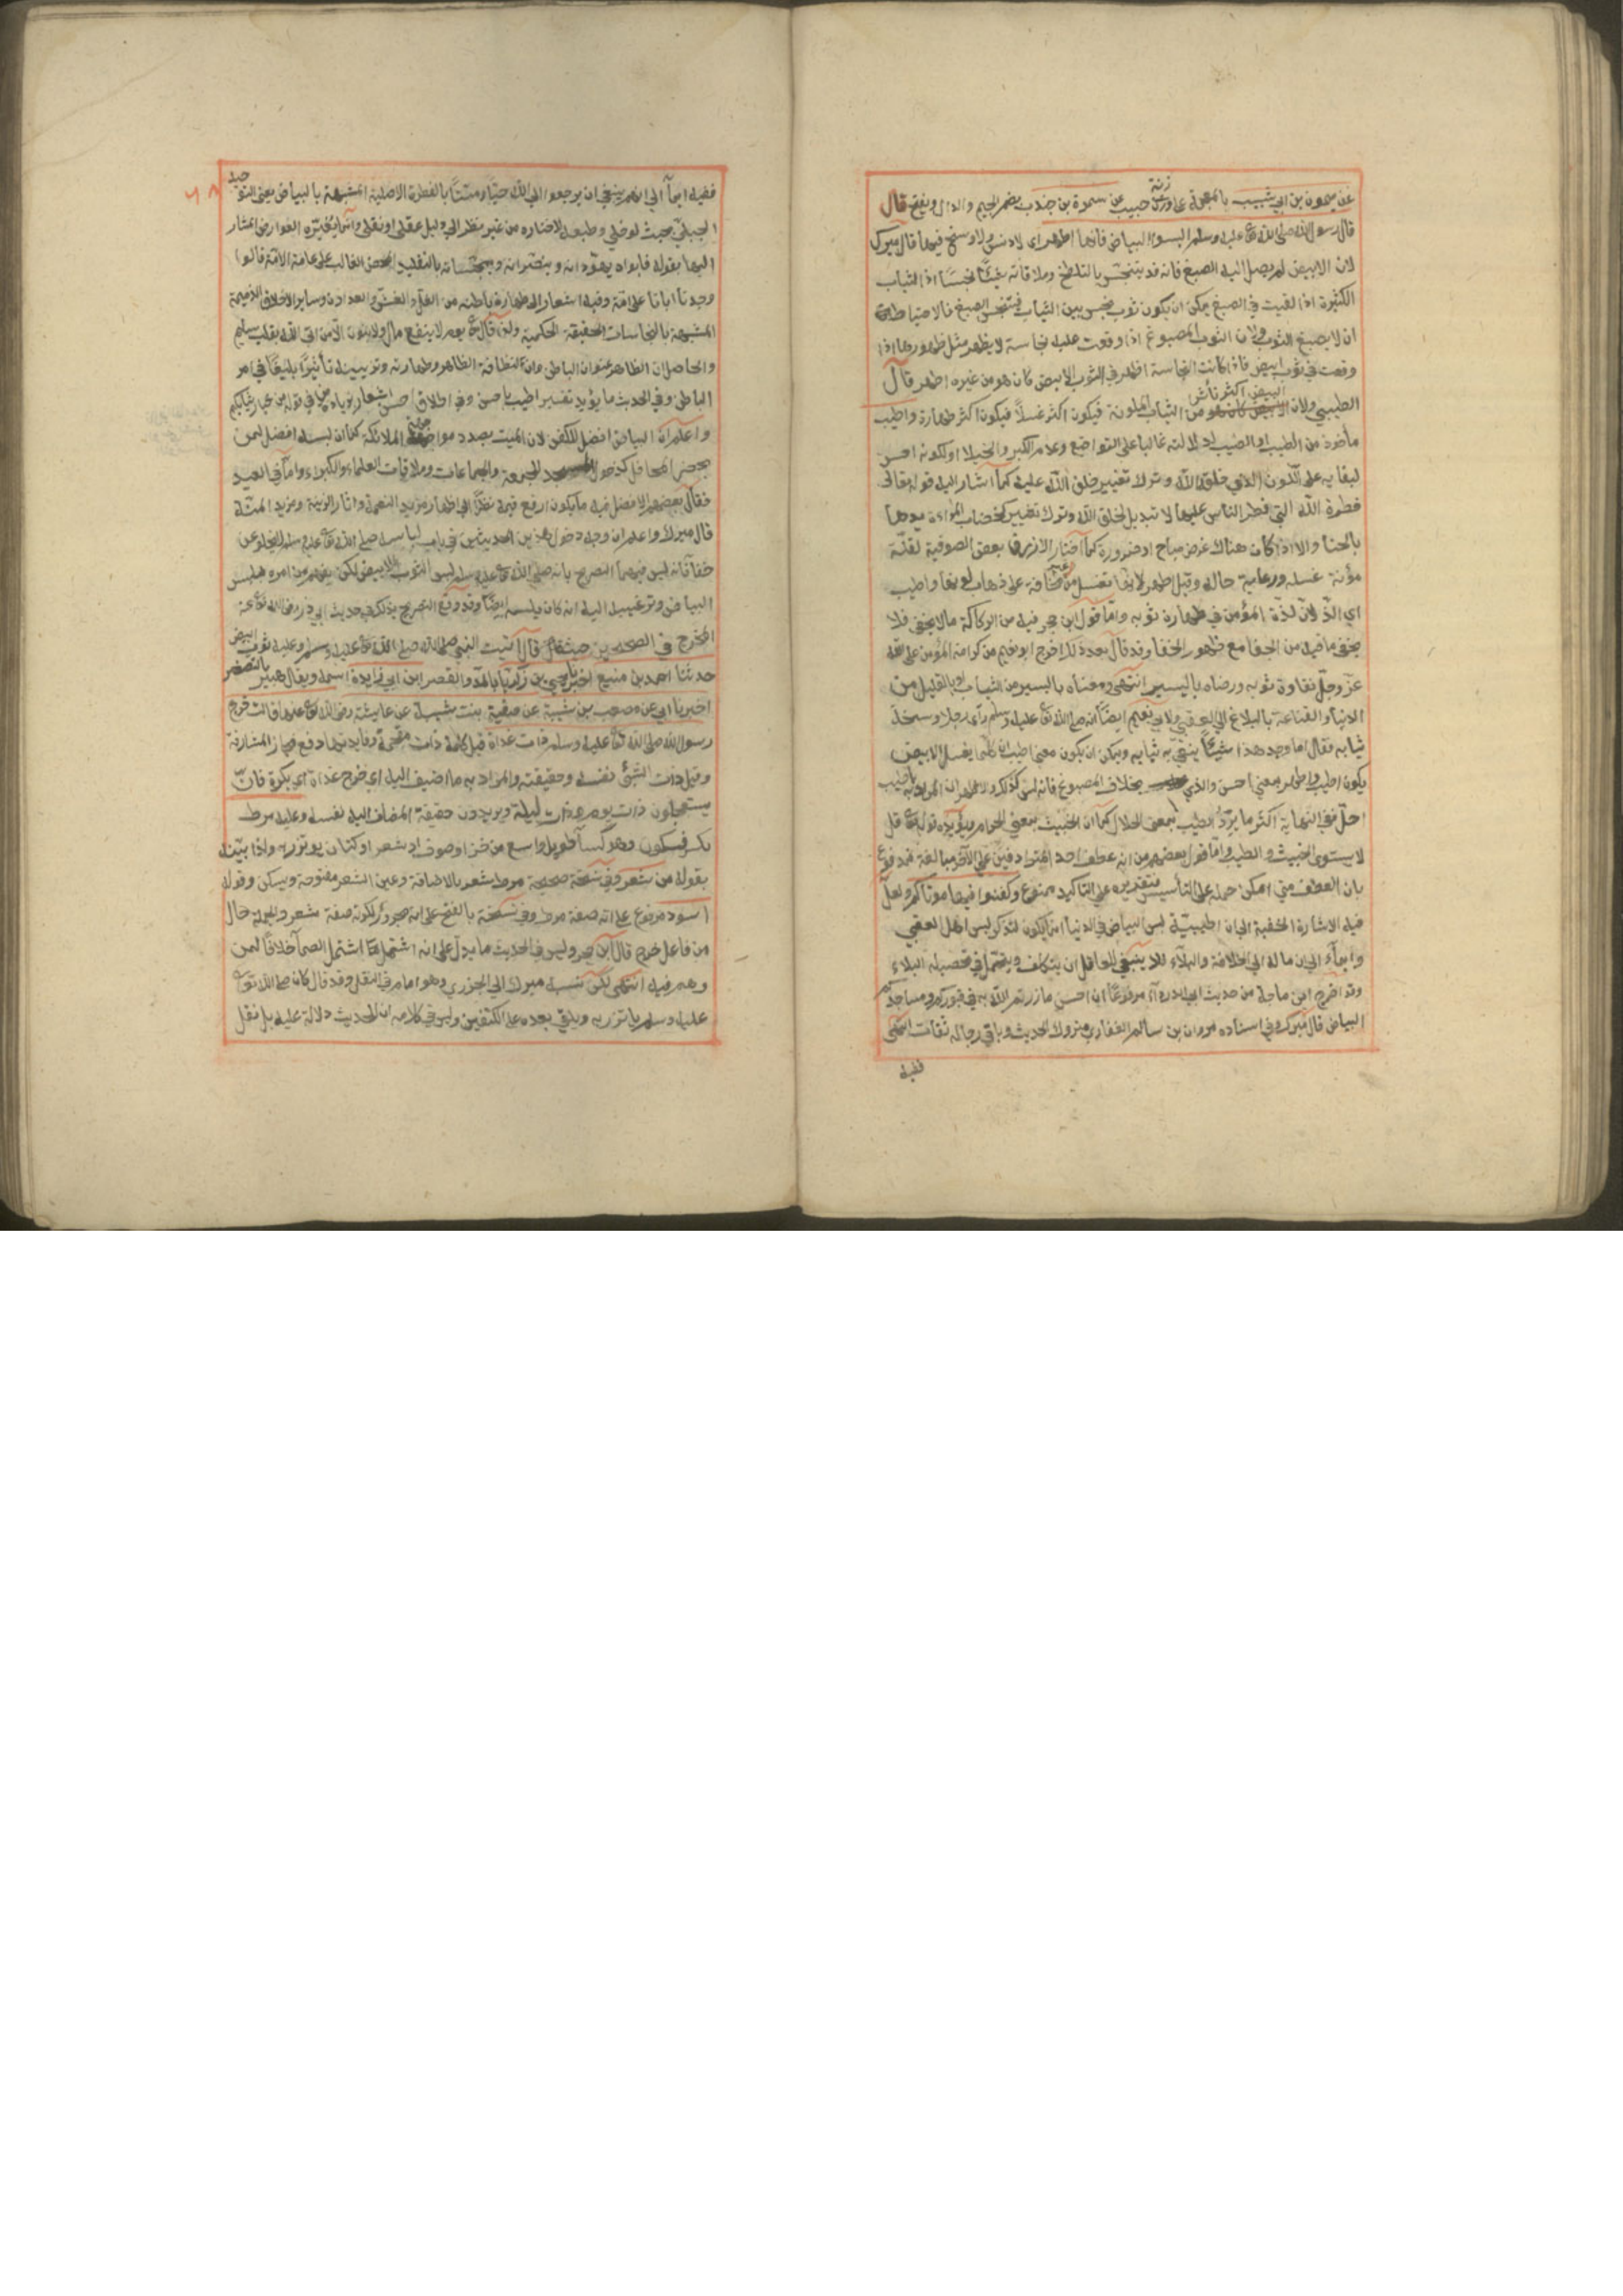 عن ميمون بن ابي شبيب بالمعجمة على وزن حبيب عن سمرة بن جندب بضم الجيم والدال وبفتح قال
قال رسول الله صلى الله تعالى عليه وسلم البسوا البياض فانها اطهر اي لا دنس ولا وسخ فيها قال ميرك
لان الابيض لم يصل اليه الصبغ فانه قد يتنجس بالتلطخ وملاقاته شيئا نجسا اذ الثياب
الكثيرة اذا القيت في الصبغ يمكن ان يكون ثوب نجس بين الثياب فيتنجس الصبغ فالاحتياط
ان لا يصبغ الثوب ولان الثوب المصبوغ اذا وقعت عليه نجاسة لا يظهر مثل ظهورها اذا
وقعت في ثوب ابيض فاذا كانت النجاسة اظهر في الثوب الابيض كان هو من غيره اطهر قال
الطيبي ولان البيض اكثر تأثرا من الثياب الملونة فيكون اكثر غسلا فيكون اكثر طهارة واطيب
مأخوذ من الطيب او الطيب لدلالته غالبا على التواضع وعدم الكبر والخيلا او لكونه احسن
لبقايه على اللون الذي خلق الله وترك تغيير خلق الله عليه كما اشار اليه قوله تعالى
فطرة الله التي فطر الناس عليها لا تبديل لخلق الله وترك تغيير كخضاب المراءة يدها
بالحنا والا اذا كان هناك غرض مباح او ضرورة كما اختار الازرق بعض الصوفية لقلة
مؤنة غسله ورعاية حاله وقيل اطهر لانها تغسل من مخافة على ذهاب لونها واطيب
اي الذ لان لذة المؤمن في طهارة ثوبه واما قول ابن حجر فيه من الركاكة ما لا يخفى فلا
يخفى ما فيه من الجفا مع ظهور الخفا وقد قال بعد ذلك اخرج ابو نعيم من كرامة المؤمن على الله
عز وجل نقاوة ثوبه ورضاه باليسير انتهى ومعناه باليسير من الثياب او بالقليل من
الدنيا والقناعة بالبلاغ الى العقبى ولابي نعيم ايضا انه صلى الله تعالى عليه وسلم رأى رجلا وسخة
ثيابه فقال اما وجد هذا شيئا ينقي به ثيابه ويمكن ان يكون معنى اطيب انها كلما يغسل الابيض
يكون اطيب واطهر بمعنى احسن والذي بخلاف المصبوغ فانه ليس كذلك والاظهر ان المراد باطيب
احل ففي النهاية اكثر ما يرد الطيب بمعنى الحلال كما ان الخبيث بمعنى الحرام ويؤيده قوله تعالى قل
لا يستوي الخبيث والطيب واما قول بعضهم من انه عطف احد المترادفين على الآخر مبالغة فمدفوع
بان العطف متى امكن حمله على التأسيس فتقديره على التاكيد ممنوع وكفنوا فيها موتاكم ولعل
فيه الاشارة الخفية الى ان اطيبيّة لبس البياض في الدنيا انما يكون لتذكر لبس اهل العقبى
وايماء الى ان ماله الى الخلاقة والبلاء فلا ينبغي للعاقل ان يتكلف ويتحمل في تحصيله البلاء
وقد اخرج ابن ماجة من حديث ابي الدرداء مرفوعا ان احسن ما زرتم الله به في قبوركم ومساجدكم
البياض قال ميرك وفي اسناده مروان بن سالم الغفاري متروك الحديث وباقي رجاله ثقات انتهى
ففيه
ففيه ايماء الى انهم ينبغي ان يرجعوا الى الله حيا وميتا بالفطرة الاصلية المشبهة بالبياض يعني التوحيد
الجبلي بحيث لو خلي وطبعه لاختاره من غير نظر الى دليل عقلي او نقلي وانما يغيره العوارض المشار
اليها بقوله فابواه يهودانه وينصرانه ويمجسانه بالتقليد المحض الغالب على عامة الامة قالوا
وجدنا ابانا على امة وفيه اشعار الى طهارة باطنه من الغل والغش والعداوة وساير الاخلاق الذميمة
المشبهة بالنجاسات الحقيقة الحكمية ولذا قال تعالى يوم لا ينفع مال ولا بنون الا من اتى الله بقلب سليم
والحاصل ان الظاهر عنوان الباطن وان لنظافة الظاهر وطهارته وتزيينه تأثيرا بليغا في امر
الباطن وفي الحديث ما يؤيد تفسير اطيب باحسن وفي اطلاق احسن اشعار بزيادة من في قوله من خيار ثيابكم
واعلم ان البياض افضل للكفن لان الميت بصدد مواجهة الملائكة كما ان لبسه افضل لمن
يحضر المحافل كدخول المسجد للجمعة والجماعات وملاقات العلماء والكبراء واما في العيد
فقال بعضهم الافضل فيه ما يكون ارفع قيمة نظرا الى اظهار مزيد النعمة واثار الزينة ومزيد المنة
قال ميرك واعلم ان وجه دخول هذين الحديثين في باب لباسه صلى الله تعالى عليه وسلم لا يخلو عن
خفا فانه ليس فيهما التصريح بانه صلى الله تعالى عليه وسلم لبس الثوب الابيض لكن يفهم من امره بلبس
البياض وترغيبه اليه انه كان يلبسه ايضا وقد وقع التصريح بذلك في حديث ابي ذر رضي الله تعالى عنه
المخرج في الصحيحين حيث قال اتيت النبي صلى الله تعالى عليه وسلم وعليه ثوب ابيض
حدثنا احمد بن منيع اخبرنا يحيى بن زكريا بالمد والقصر ابن ابي زايدة اسمه ويقال هبير بالتصغير
اخبرنا ابي عن مصعب بن شيبة عن صفية بنت شيبة عن عايشة رضي الله تعالى عنها قالت خرج
رسول الله صلى الله تعالى عليه وسلم ذات غداة قيل كلمة ذات مقحمة وفايدتها دفع مجاز المشارفة
وقيل ذات الشيئ نفسه وحقيقته والمراد به ما اضيف اليه اي خرج غداة اي بكرة فان
يستعملون ذات يوم وذات ليلة ويريدون حقيقة المضاف اليه نفسه وعليه مرط
بكسر فسكون وهو كسا طويل واسع من خز او صوف او شعر او كتان يوتزر به واذا بيّنه
بقوله من شعر وفي نسخة صحيحة مرط شعر بالاضافة وعين الشعر مفتوحة ويسكن وقوله
اسود مرفوع على انه صفة مرط وفي نسخة بالفتح على انه مجرور لكونه صفة شعر والجملة حال
من فاعل خرج قال ابن حجر وليس في الحديث ما يدل على انه اشتمل بها اشتمال الصما خلافا لمن
وهم فيه انتهى لكن نسبه ميرك الى الجزري وهو امام في النقل وقد قال كان صلى الله تعالى
عليه وسلم ياتزر به ويلقي بعضه على الكتفين وليس في كلامه ان الحديث دلالة عليه بل نقل